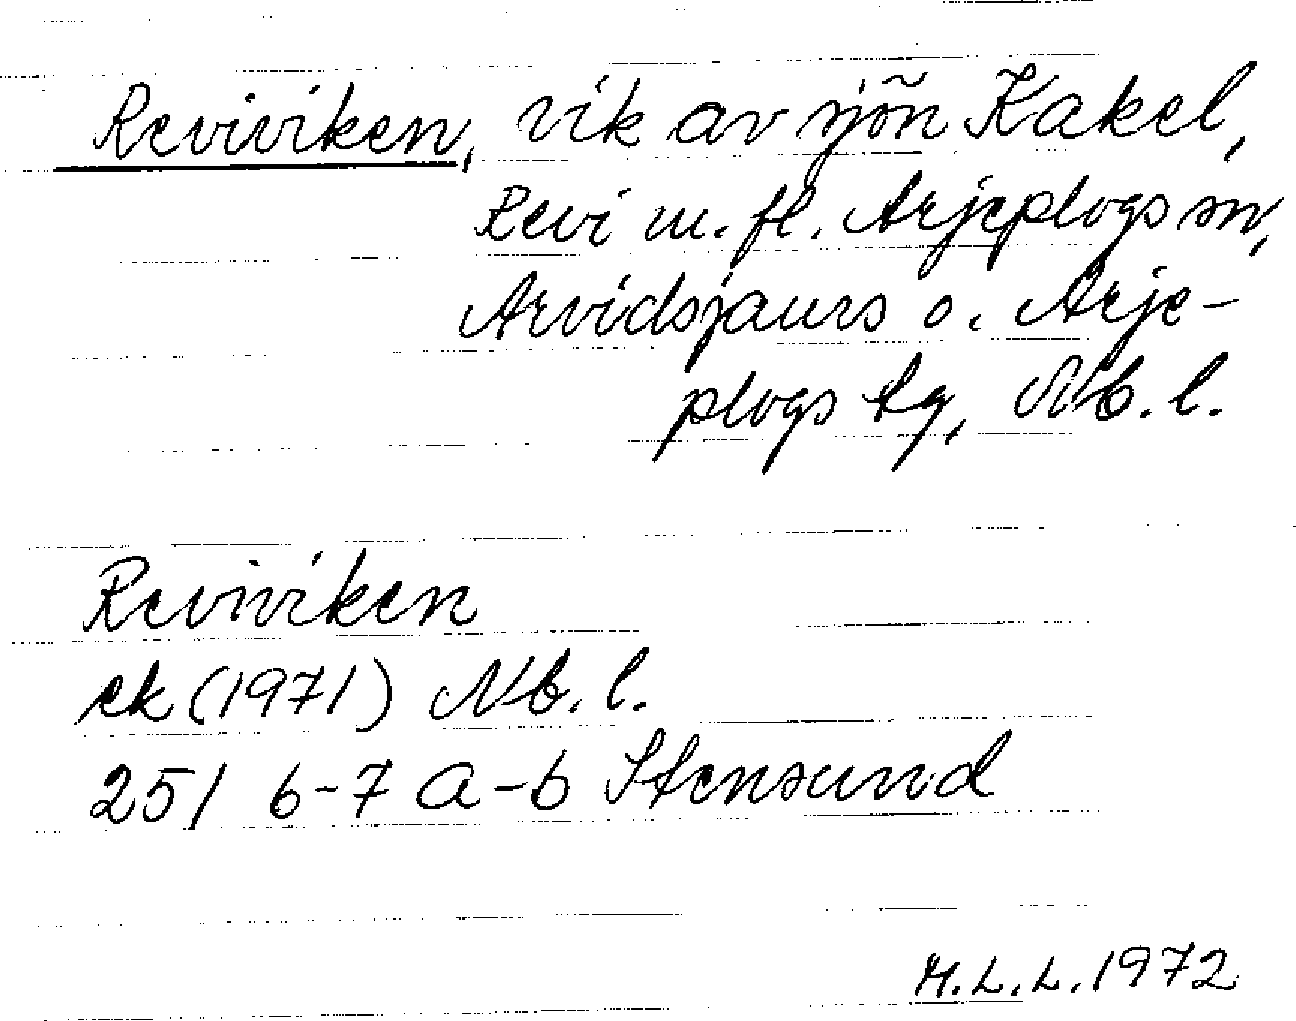 Reviviken, vik av sjön Kakel,
Revi m. fl. Arjeplogs sn,
Arvidsjaurs o. Arje-
plogs tg, Nb. l.
Reviviken
ek (1971) Nb. l.
25I 6-7 a-b Stensund
M.L.L. 1972